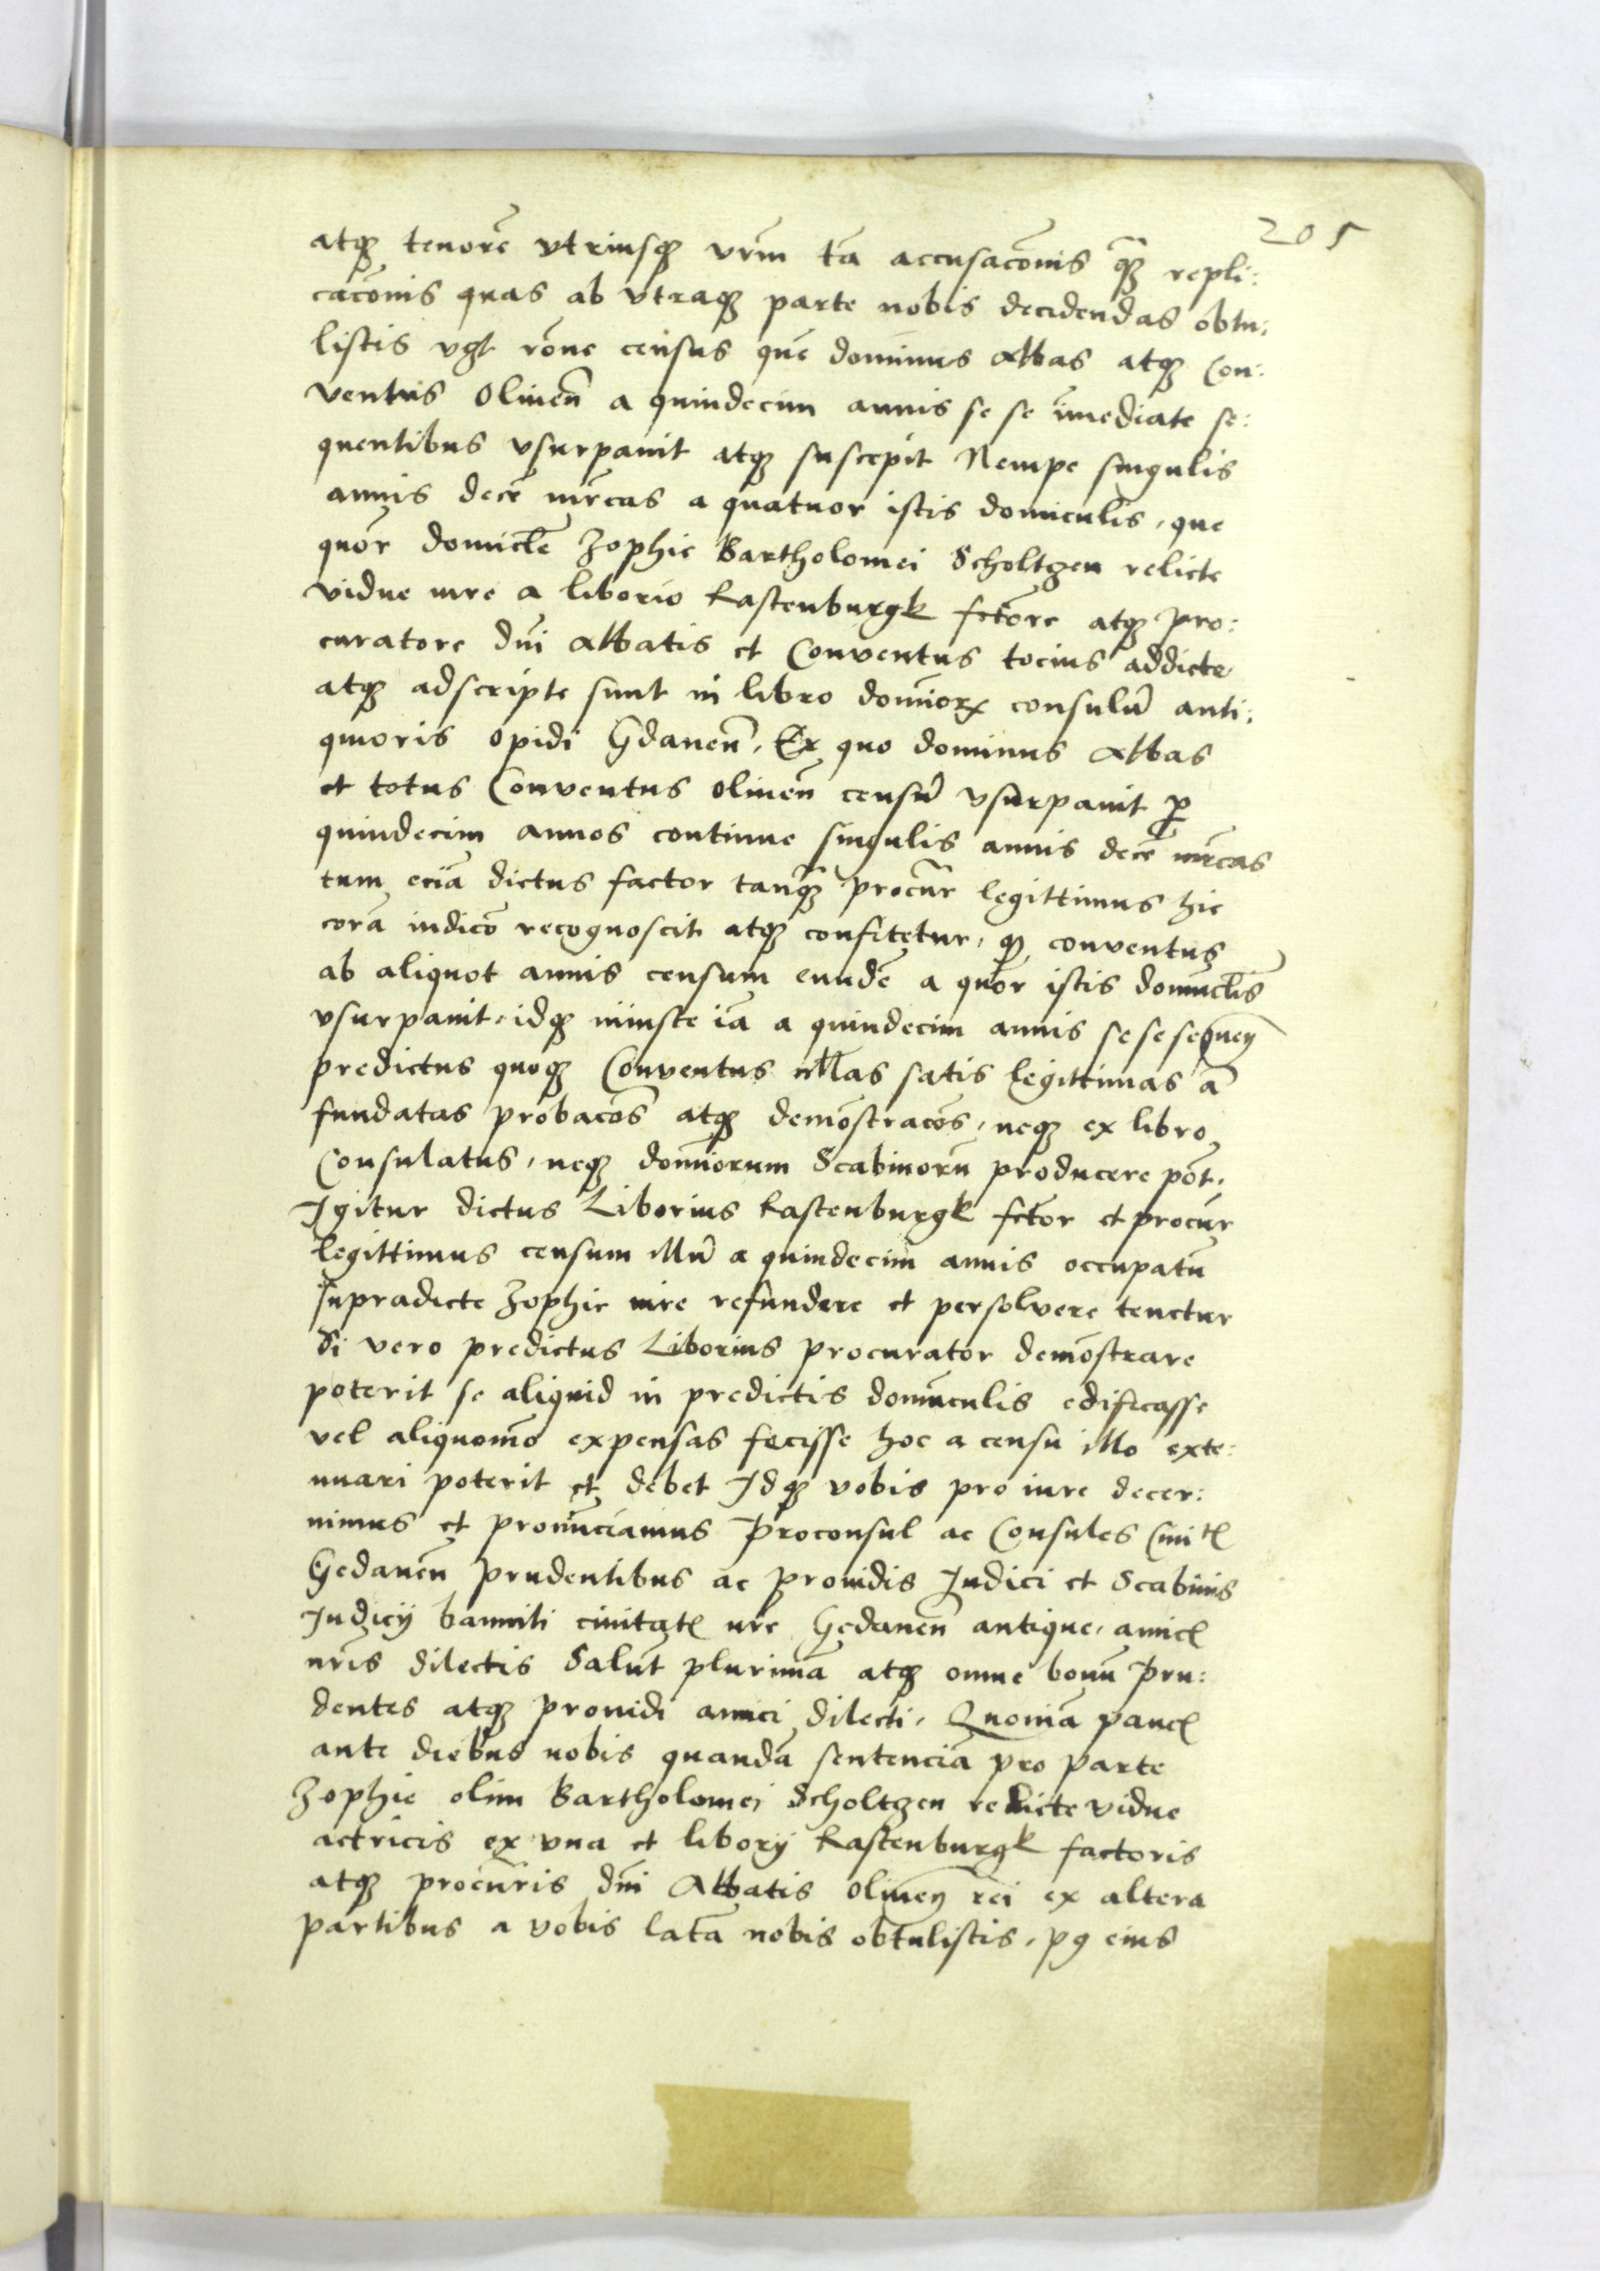 205
atqȝ tenorē vtriusqȝ vrm̄ tā accusacōnis q̄ȝ repli:
cacōnis quas ab vtraqȝ parte nobis decidendas obtu:
listis vgl rōne census quē dominus Abbas atqȝ Con:
ventus Oliuen̄ a quindecim annis se se im̄ediate se:
quentibus vsurpauit atqȝ suscepit Nempe singulis
annis decē mrcas a quatuor istis domiculis, que
quōr domicle Zophie Bartholomei Scholtzen relicte
vidue iure a liborio Rastenburgk fctore atqȝ pro:
curatore dn̄i Abbatis et Conventus tocius addicte
atqȝ adscripte sunt in libro dominorꝝ consulū anti:
quioris opidi Gdanen̄, Ex quo dominus Abbas
et totus Conventus oliuen̄ censū vsurpauit ꝑ
quindecim annos continue singulis annis decē mrcas
tum eciā dictus factor tanq̄ȝ procūr legittimus hic
corā iudicō recognoscit atqȝ confitetur, qȝ conventus
ab aliquot annis censum eundē a quōr istis domuclis
vsurpauit, idqȝ iniuste iā a quindecim annis se se sequen̄
predictus quoqȝ Conventus nllas satis legittimas ā
fundatas probacōs atqȝ demōstracōs, neqȝ ex libro
Consulatus, neqȝ dominorum Scabinorū producere pōt,
Igitur dictus Liborius Rastenburgk fctor et procūr
legittimus censum illū a quindecim annis occupatū
supradicte Zophie iure refundere et persolvere tenetur
Si vero predictus Liborius procurator demōstrare
poterit se aliquid in predictis domūculis edificasse
vel aliquomō expensas fecisse hoc a censu illo exte:
nuari poterit et debet Idqȝ vobis pro iure decer:
nimus et pronūciamus Proconsul ac Consules Ciuitꝭ
Gedanen̄ prudentibus ac prouidis Iudici et Scabinis
Iudicij banniti ciuitatꝭ nre Gedanen̄ antique, amicꝭ
nrīs dilectis Salutē plurimā atqȝ omne bonū Pru:
dentes atqȝ prouidi amici dilecti, Quoniā paucꝭ
ante diebus nobis quandā sentenciā pro parte
Zophie olim Bartholomei Scholtzen relicte vidue
actricis ex vna et liborij Rastenburgk factoris
atqȝ procūris dn̄i Abbatis oliuen̄ rei ex altera
partibus a vobis latā nobis obtulistis, pꝯ eius